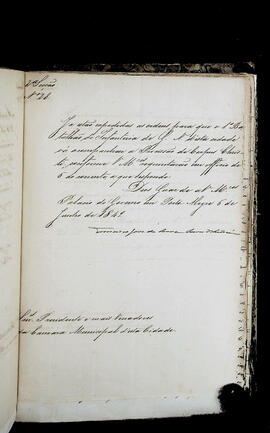 4ª Secção
Nº 26.
Ja estão expedidas as ordens para que o 1º Ba
talhão de Infantaria da G. N. desta cidade
vá acompanhar a Procissão de Corpus Chris
ti, conforme Vᵐᶜᵉˢ requisitarão em officio de
6 do corrente a que respondo.
Deos Guarde a Vᵐᶜᵉˢ
Palacio do Governo em Porto Alegre 6 de
Junho de 1849
Francisco José de Souza Soares d'Andréa
Snrˢ. Presidente e mais Vereadores
da Camara Municipal desta Cidade.